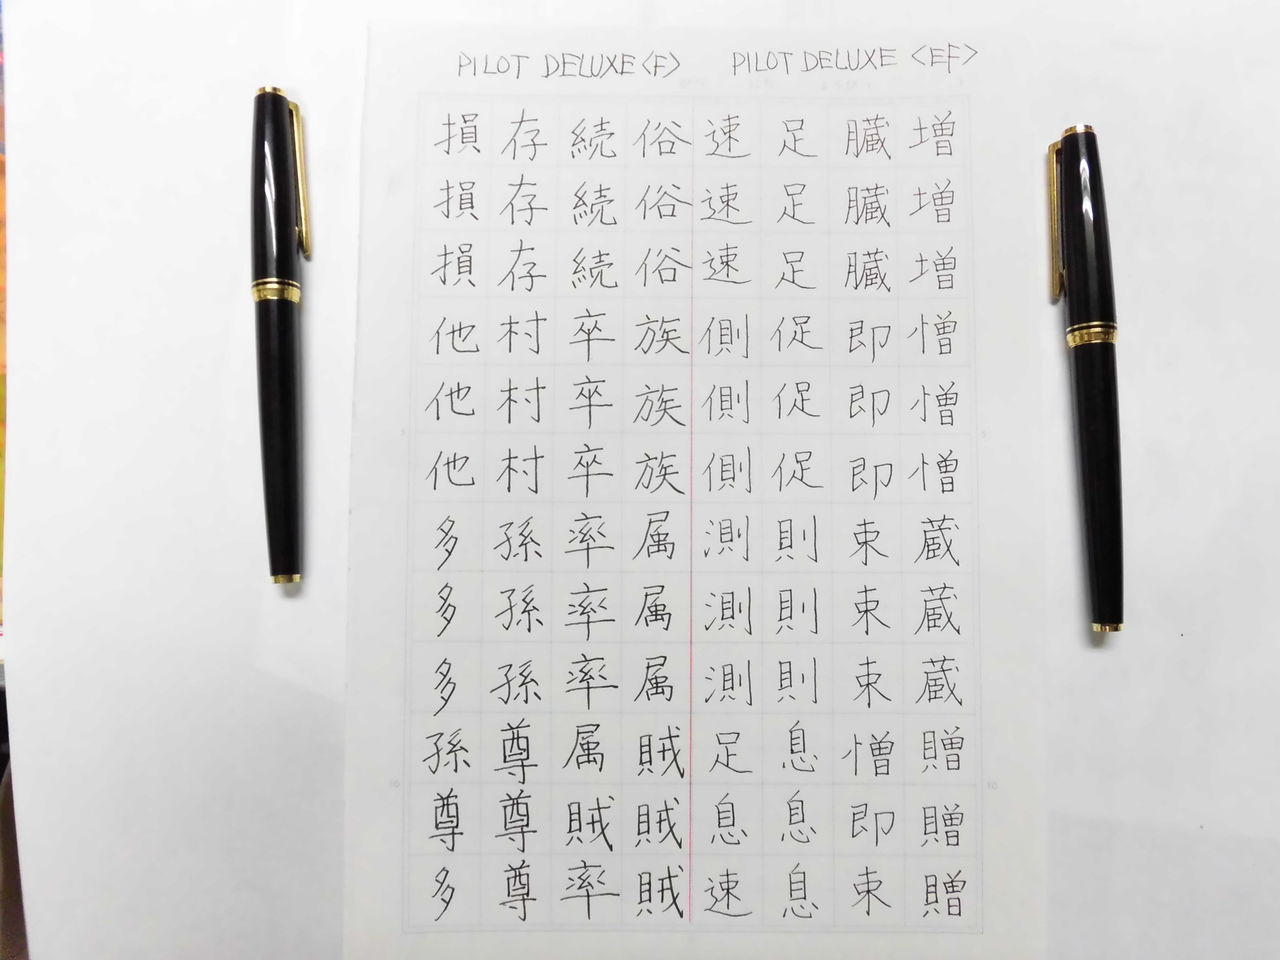 PILOT DELUXE <F>
PILOT DELUXE <EF>
増増増憎憎憎蔵蔵蔵贈贈贈
臓臓臓即即即束束束憎即束
足足足促促促則則則息息息
速速速側側側測測測足息速
俗俗俗族族族属属属賊賊賊
続続続卒卒卒率率率属賊率
存存存村村村孫孫孫尊尊尊
損損損他他他多多多孫尊多
5
10
5
10